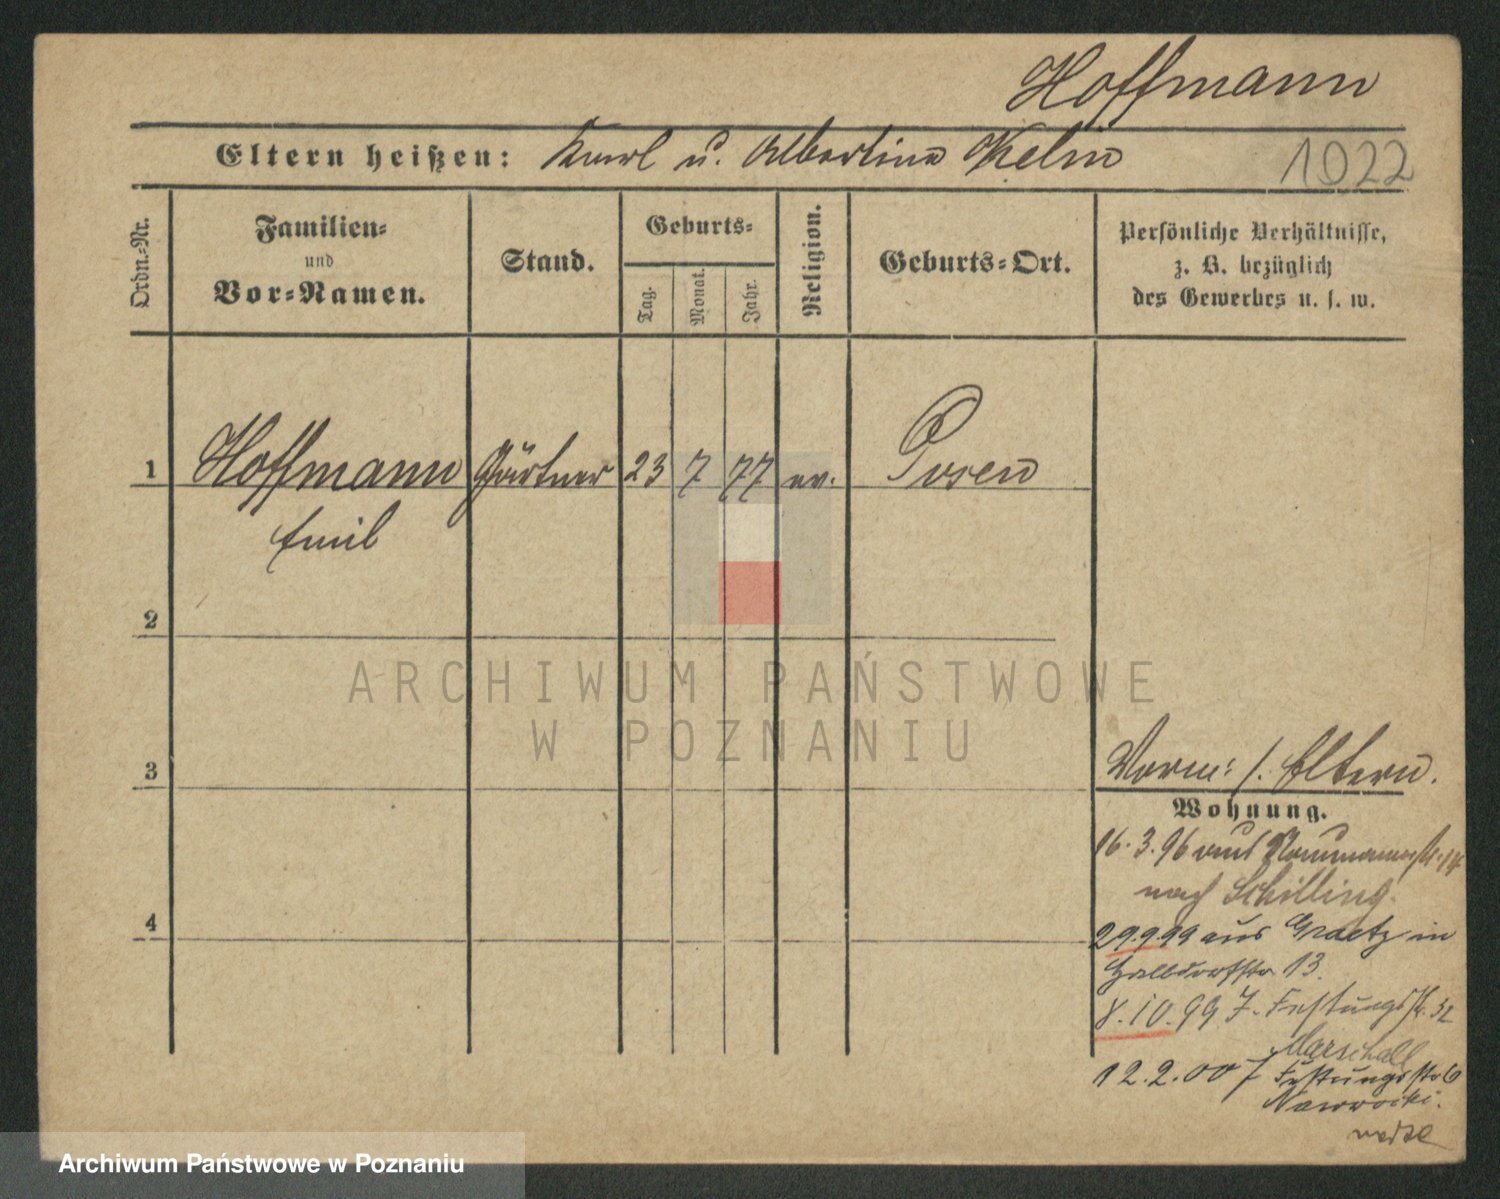 Hoffmann
Eltern heißen: Karl u. Albertine Klein
1022
Ordn.-Nr.
Familien-
und
Vor-Namen.
Stand.
Geburts-
Tag.
Monat.
Jahr.
Religion.
Geburts-Ort.
Persönliche Verhältnisse,
z. B. bezüglich
des Gewerbes u. s. w.
1 Hoffmann Gärtner 23 7 77 ev. Posen
Emil
2
3
4
ARCHIWUM PAŃSTWOWE
W POZNANIU
Vorm: s. Eltern.
Wohnung.
16.3.96 aus Naumannstr. 14
nach Schilling.
29.9.99 aus Graetz in
13.
8.10.99 7. Festungsstr. 32
Marschall
12.2.00 7 Festungsstr 6
Nawrocki.
Archiwum Państwowe w Poznaniu